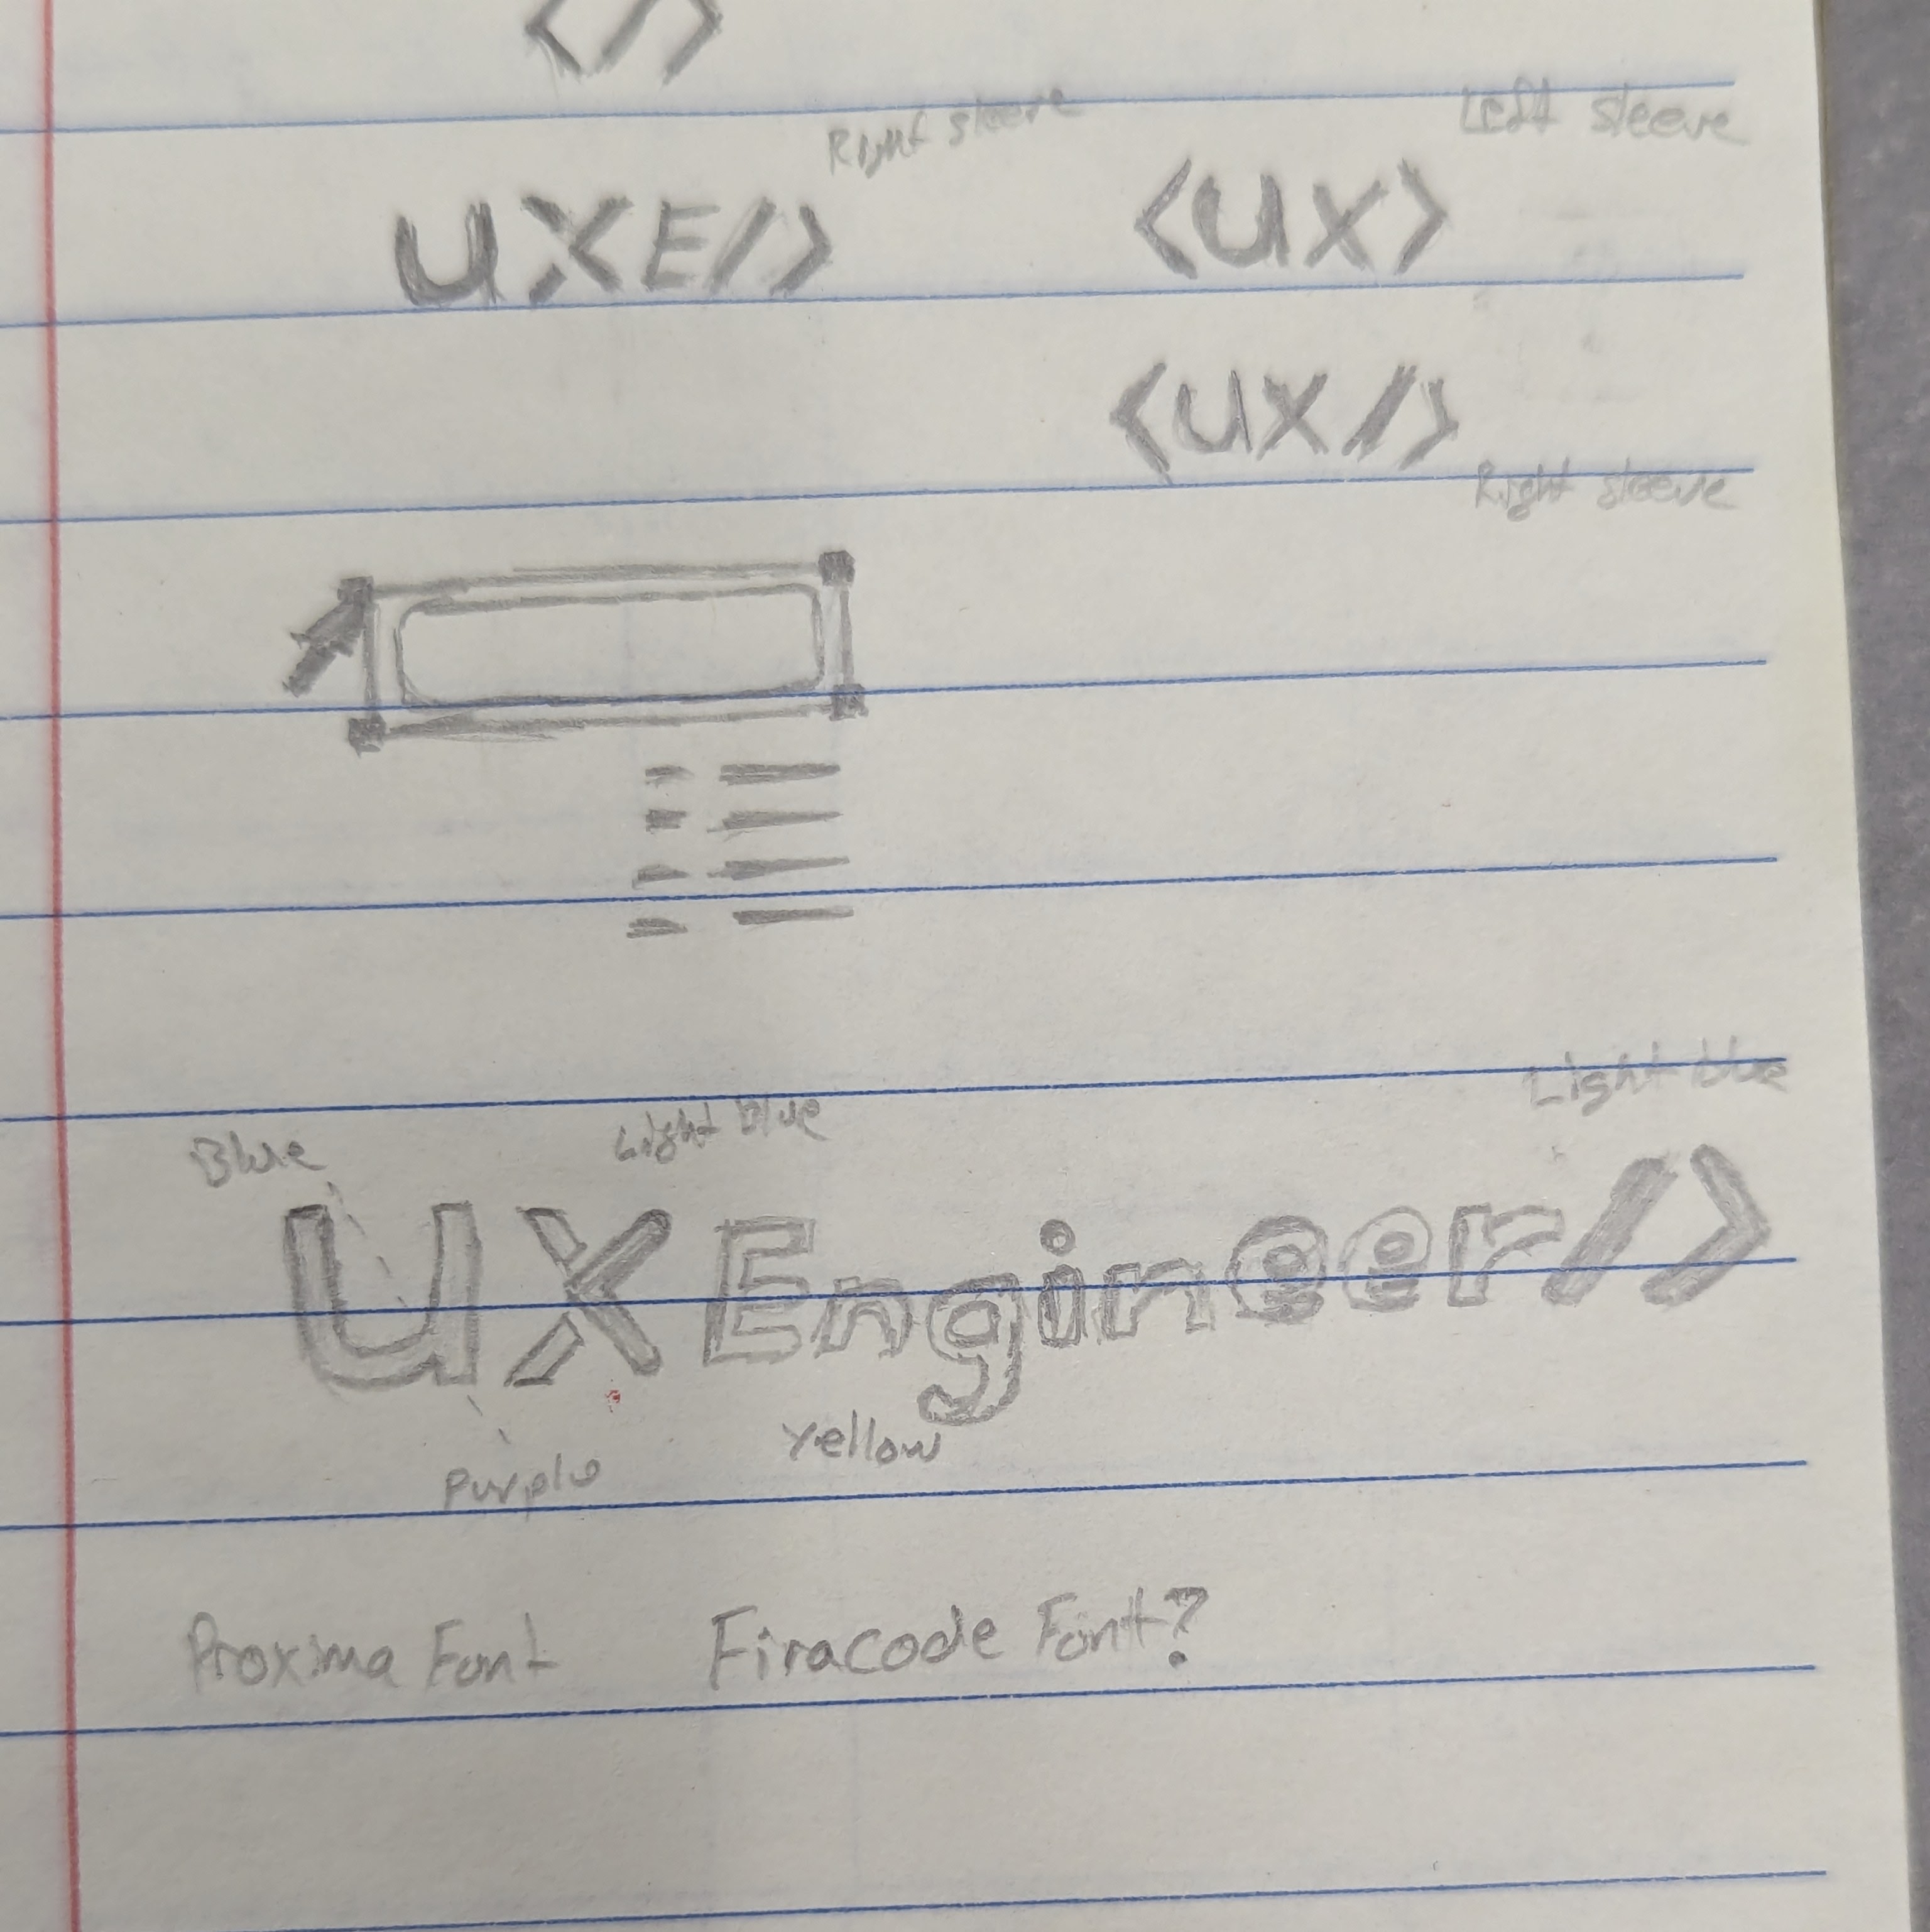 </>
Right sleeve
Left sleeve
UXE/>
<UX>
<UX/>
Right sleeve
Light blue
Blue
Light Blue
UX Engineer/>
Yellow
Purple
Proxima Font Firacode Font?